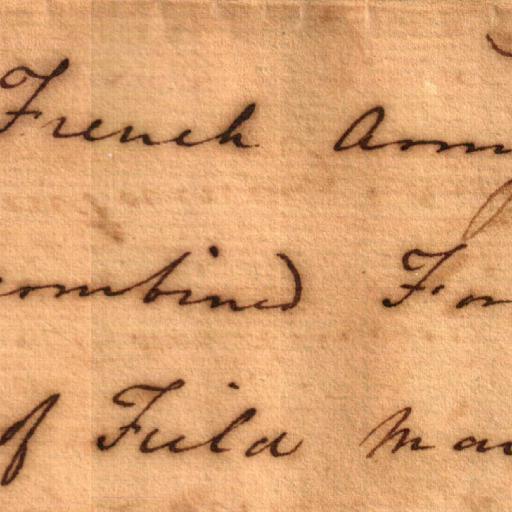 French Arm
combined For
of Field Mar